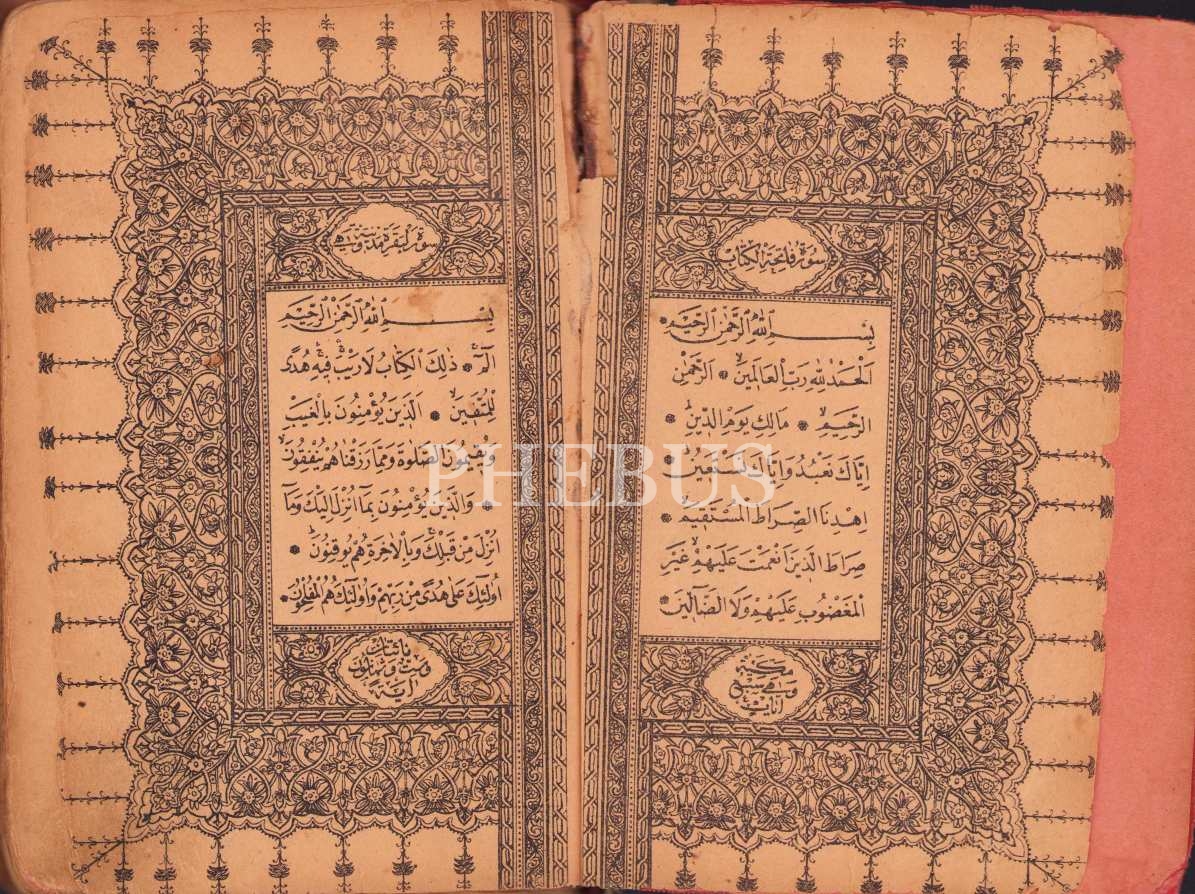 سورة فاتحة الكتاب
بِسْمِ اللهِ الرَّحْمٰنِ الرَّحِيمِ
اَلْحَمْدُ لِلّٰهِ رَبِّ الْعَالَمِينَ ۙ اَلرَّحْمٰنِ
الرَّحِيمِ ۙ مَالِكِ يَوْمِ الدِّينِ ۜ
اِيَّاكَ نَعْبُدُ وَاِيَّاكَ نَسْتَعِينُ ۜ
اِهْدِنَا الصِّرَاطَ الْمُسْتَقِيمَ ۙ
صِرَاطَ الَّذِينَ اَنْعَمْتَ عَلَيْهِمْ ۙ غَيْرِ
الْمَغْضُوبِ عَلَيْهِمْ وَلَا الضَّالِّينَ
مكية
وهي سبع
آيات
سورة البقرة مدنية وهي
بِسْمِ اللهِ الرَّحْمٰنِ الرَّحِيمِ
الٓمٓ ۚ ذٰلِكَ الْكِتَابُ لَا رَيْبَ ۚ فِيهِ ۚ هُدًى
لِلْمُتَّقِينَ ۙ اَلَّذِينَ يُؤْمِنُونَ بِالْغَيْبِ
وَيُقِيمُونَ الصَّلٰوةَ وَمِمَّا رَزَقْنَاهُمْ يُنْفِقُونَ ۙ
وَالَّذِينَ يُؤْمِنُونَ بِمَٓا اُنْزِلَ اِلَيْكَ وَمَٓا
اُنْزِلَ مِنْ قَبْلِكَ ۚ وَبِالْاٰخِرَةِ هُمْ يُوقِنُونَ ۜ
اُولٰٓئِكَ عَلٰى هُدًى مِنْ رَبِّهِمْ وَاُولٰٓئِكَ هُمُ الْمُفْلِحُونَ
مائتان
وست وثمانون
آية
PHEBUS